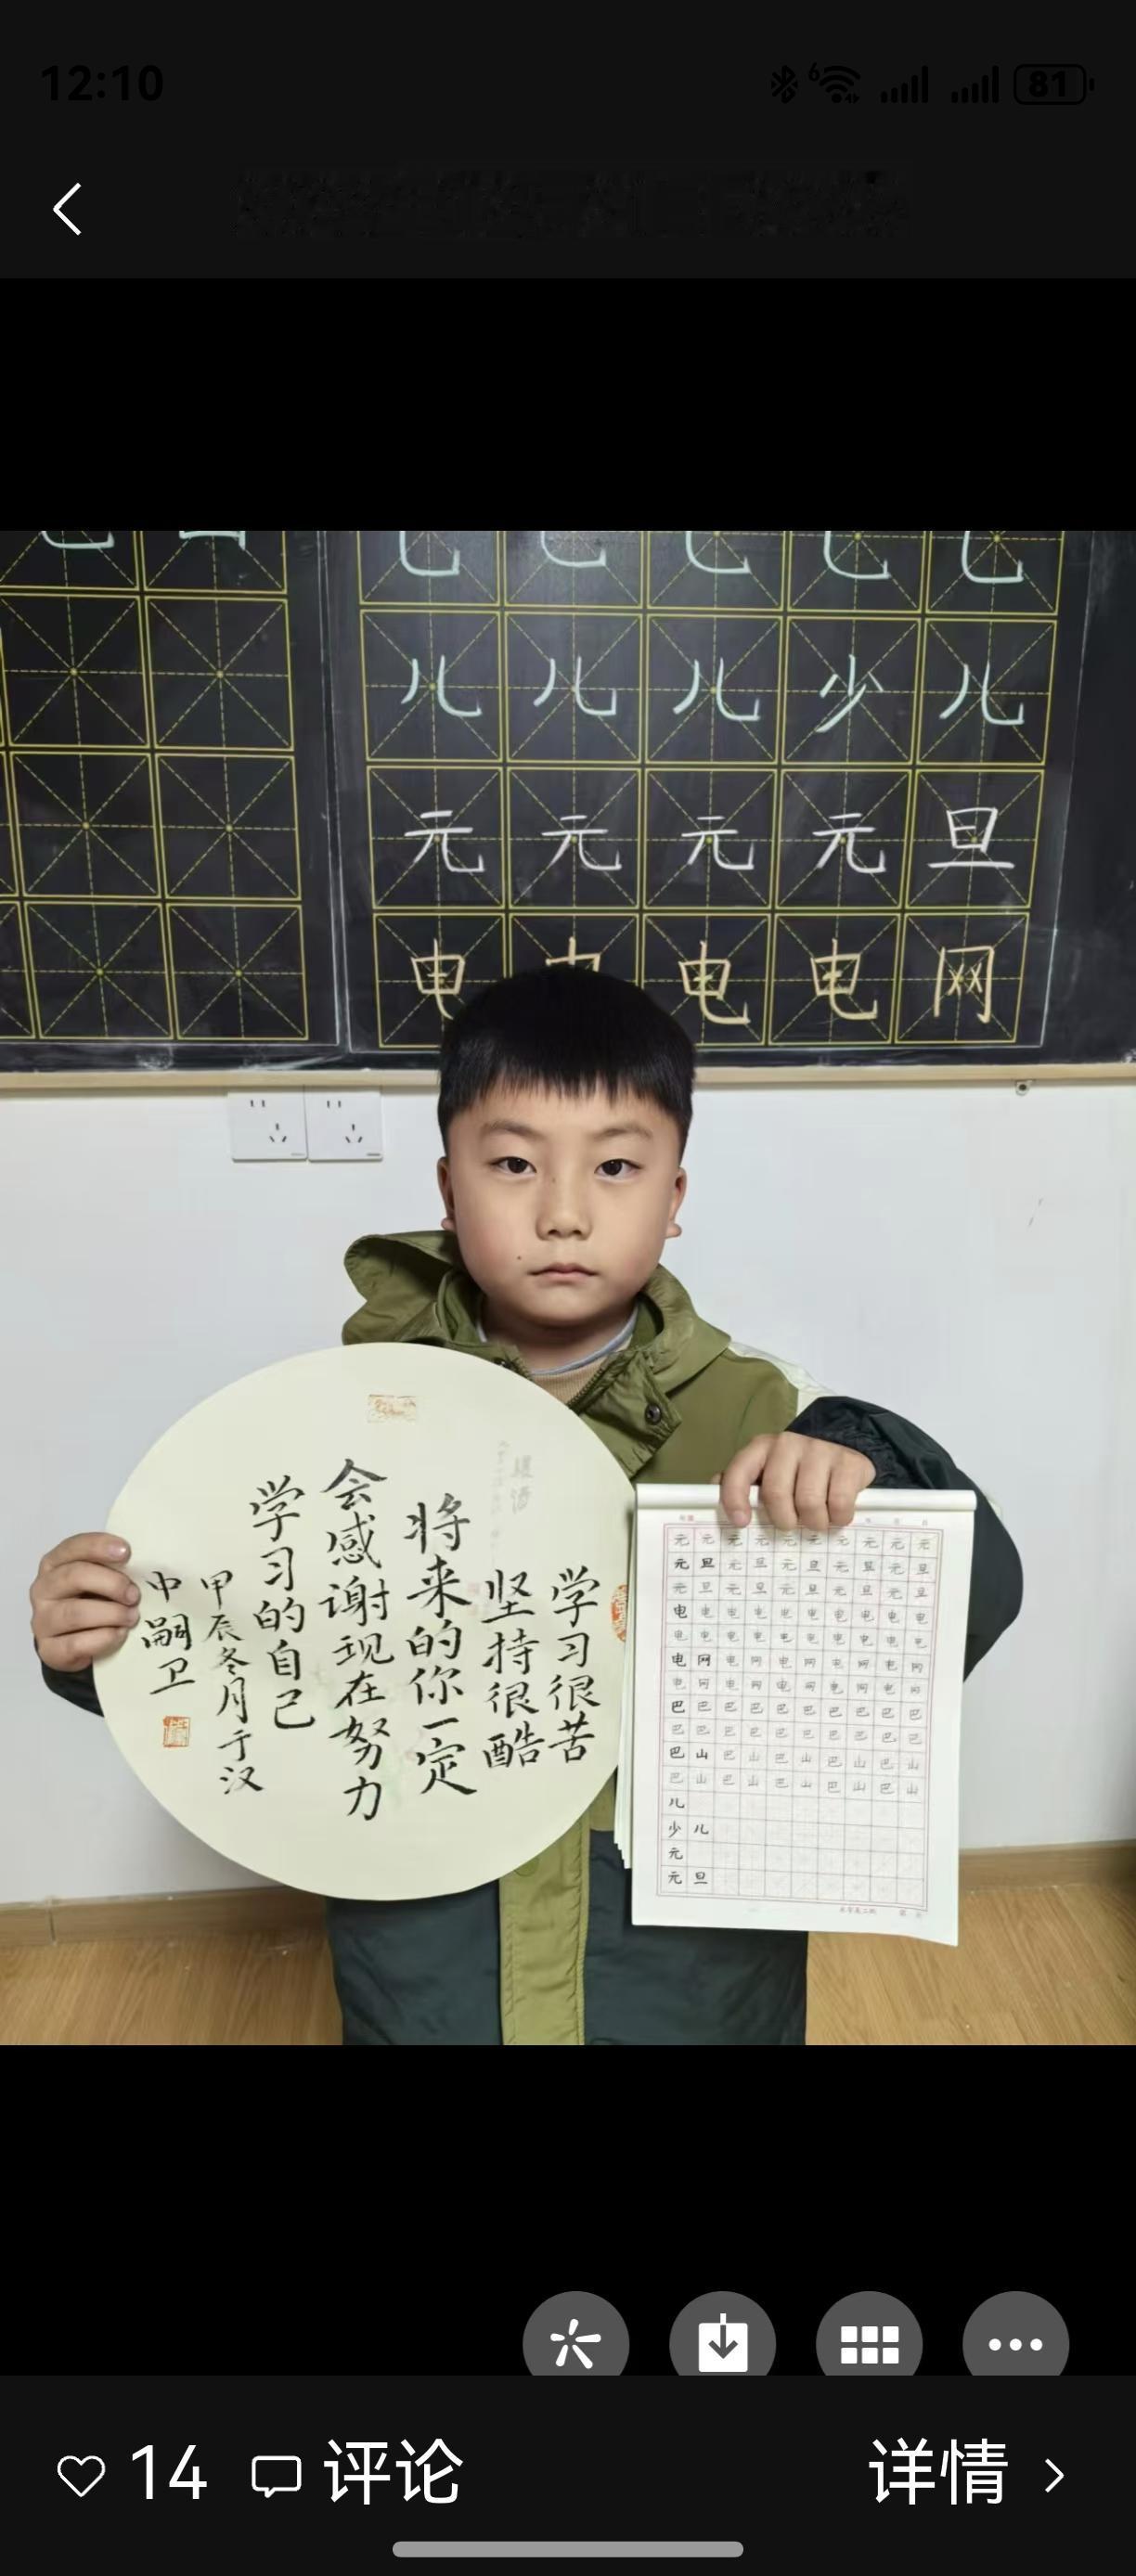 12:10
6
81
儿 儿 儿 少 儿
元 元 元 元 旦
电 电 电 电 网
学习很苦
坚持很酷
将来的你一定
会感谢现在努力
学习的自己
甲辰冬月于汉
中嗣卫
元 元 元 元 元 元 元 元 元 元
元 旦 元 旦 元 旦 元 旦 元 旦
元 旦 元 旦 元 旦 元 旦 元 旦
电 电 电 电 电 电 电 电 电 电
电 电 电 电 电 电 电 电 电 电
电 网 电 网 电 网 电 网 电 网
电 网 电 网 电 网 电 网 电 网
巴 巴 巴 巴 巴 巴 巴 巴 巴 巴
巴 巴 巴 巴 巴 巴 巴 巴 巴 巴
巴 山 巴 山 巴 山 巴 山 巴 山
巴 山 巴 山 巴 山 巴 山 巴 山
儿
少 儿
元
元 旦
14 评论 详情